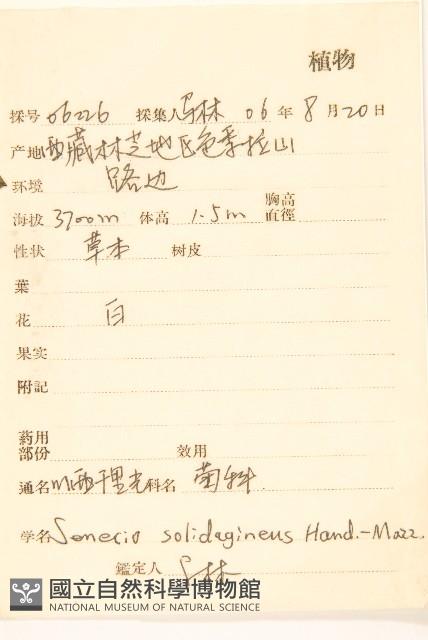 植物
採号 06226 採集人 马林 06 年 8 月 20 日
产地 西藏林芝地区色季拉山
环境 路边
海拔 3700m 体高 1.5m 胸高直徑
性状 草本 树皮
葉
花 白
果实
附記
药用部份 效用
通名 川西千里光 科名 菊科
学名 Senecio solidagineus Hand.-Mazz.
鑑定人 马林
國立自然科學博物館
NATIONAL MUSEUM OF NATURAL SCIENCE